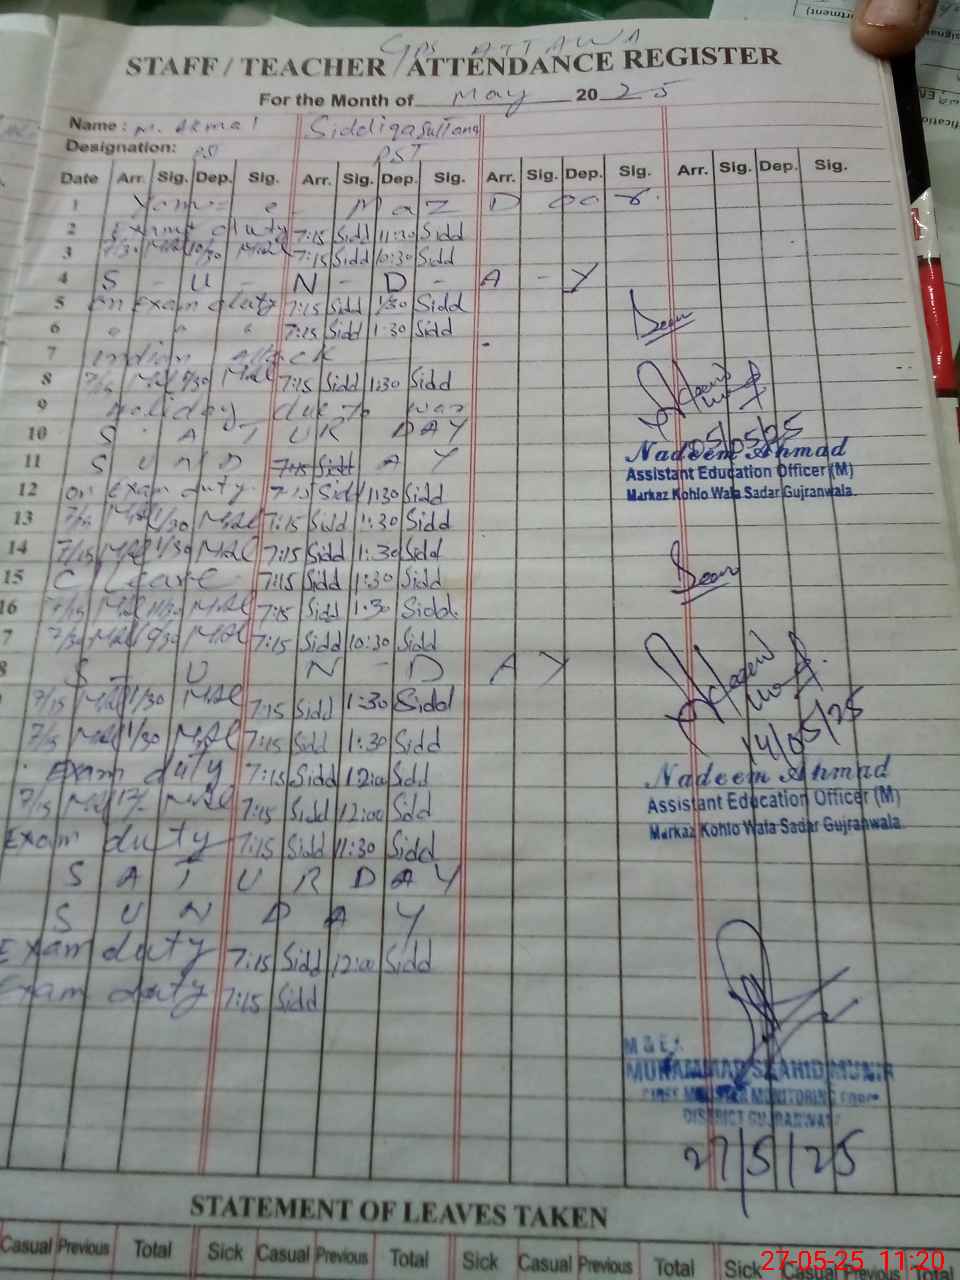 GPS ATTAWA
STAFF / TEACHER ATTENDANCE REGISTER
For the Month of May 2025
Name: M. Akmal Siddiqa Sultana
Designation: PST PST
Date Arr. Sig. Dep. Sig. Arr. Sig. Dep. Sig. Arr. Sig. Dep. Sig. Arr. Sig. Dep. Sig.
1 Yom - e - Maz D oor
2 Exam duty 7:15 Sidd 11:30 Sidd
3 7/30 MAl 10/30 MAl 7:15 Sidd 10:30 Sidd
4 S - U - N - D - A - Y
5 on Exam duty 7:15 Sidd 1:30 Sidd
6 " " " 7:15 Sidd 1:30 Sidd
7 Indian attack
8 7/15 MAl 1/30 MAl 7:15 Sidd 1:30 Sidd
9 Holiday due to war
10 S A T UR DAY
11 S U N D 7:15 Sidd A Y
12 on Exam duty 7:15 Sidd 11:30 Sidd
13 7/15 MAl 1/30 MAl 7:15 Sidd 1:30 Sidd
14 7/15 MAl 1/30 MAl 7:15 Sidd 1:30 Sidd
15 C Leave 7:15 Sidd 1:30 Sidd
16 7/15 MAl 11/30 MAl 7:15 Sidd 1:30 Sidd
7 7/30 MAl 9/30 MAl 7:15 Sidd 10:30 Sidd
8 S - U N - D A Y
7/15 MAl 1/30 MAl 7:15 Sidd 1:30 Sidd
7/15 MAl 1/30 MAl 7:15 Sidd 1:30 Sidd
Exam duty 7:15 Sidd 12:00 Sidd
7/15 MAl 12/- MAl 7:15 Sidd 12:00 Sidd
Exam duty 7:15 Sidd 11:30 Sidd
S A T U R D A Y
S U N D A Y
Exam duty 7:15 Sidd 12:00 Sidd
Exam duty 7:15 Sidd
Seen
05/05/25
Nadeem Ahmad
Assistant Education Officer (M)
Markaz Kohlo Wala Sadar Gujranwala.
Seen
14/05/25
Nadeem Ahmad
Assistant Education Officer (M)
Markaz Kohlo Wala Sadar Gujranwala.
M & E A
MUHAMMAD SHAHID MUNIR
CHIEF MINISTER MONITORING FORCE
DISTRICT GUJRANWALA
27/5/25
STATEMENT OF LEAVES TAKEN
Casual Previous Total Sick Casual Previous Total Sick Casual Previous Total Sick Casual Previous Total
27-05-25 11:20